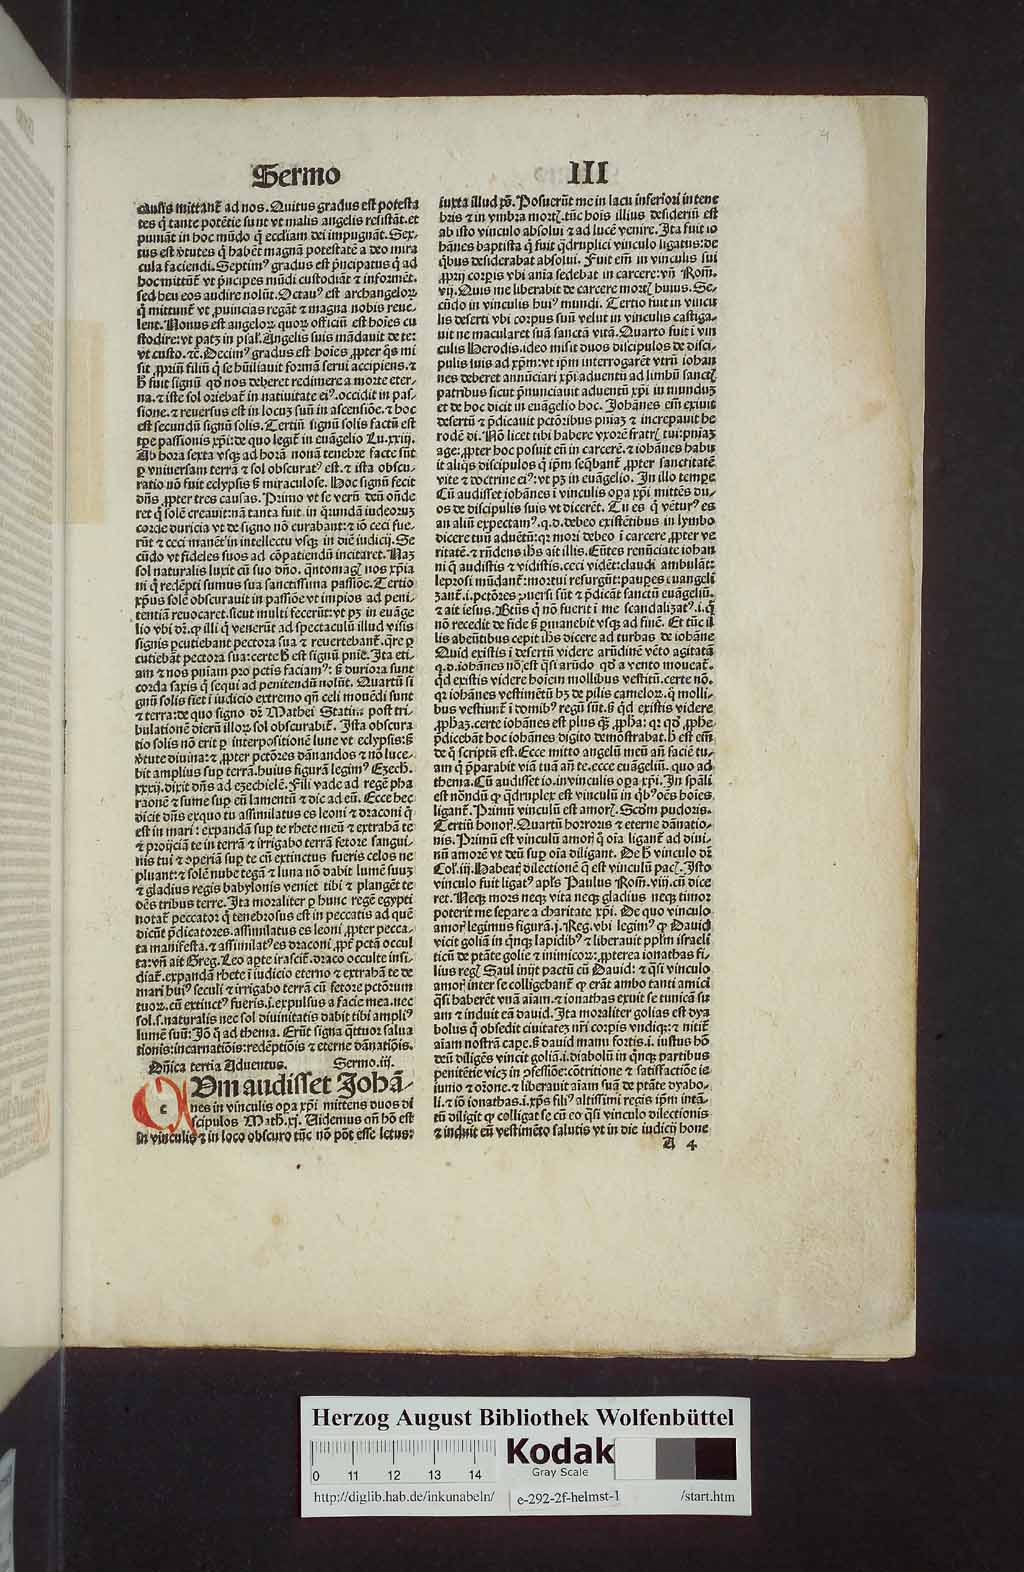 Sermo III
causis mittant᷑ ad nos. Quitus gradus est potesta
tes q̄ tante potētie sunt vt malis angelis resistāt. et
puniāt in hoc mūdo q̄ eccliam dei impugnāt. Sex-
tus est v̓tutes q̄ habēt magnā potestatē a deo mira
cula faciendi. Septimꝰ gradus est p̓ncipatus q̄ ad
hoc mittūt᷑ vt p̓ncipes mūdi custodiāt ⁊ informēt.
sed heu eos audire nolūt. Octauꝰ est archangeloꝝ
q̄ mittunt᷑ vt ꝓuincias regāt ⁊ magna nobis reue-
lent. Nonus est angeloꝝ quoꝝ officiū est hoīes cu
stodire: vt patꝫ in psal᷑. Angelis suis mādauit de te:
vt custo. ⁊c̄. Decimꝰ gradus est hoīes ꝓpter q̄s mi
sit ꝓpriū filiū q̄ se hūiliauit formā serui accipiens. ⁊
h̄ fuit signū qd̓ nos deberet redimere a morte eter-
na. ⁊ iste sol oriebat᷑ in natiuitate eiꝰ. occidit in pas-
sione. ⁊ reuersus est in locuꝫ suū in ascensiōe. ⁊ hoc
est secundū signū solis. Tertiū signū solis factū est
tp̄e passionis xp̄i: de quo legit᷑ in euāgelio Lu. xxiij.
Ab hora sexta vsqꝫ ad horā nonā tenebre facte sūt
ꝑ vniuersam terrā ⁊ sol obscuratꝰ est. ⁊ ista obscu-
ratio nō fuit eclypsis s̄ miraculose. Hoc signū fecit
dn̄s ꝓpter tres causas. Primo vt se verū deū ōnde
ret q̄ solē creauit: nā tanta fuit in q̄undā iudeoruꝫ
corde duricia vt de signo nō curabant: ⁊ iō ceci fue-
rūt ⁊ ceci manēt in intellectu vsqꝫ in diē iudicij. Se
cūdo vt fideles suos ad cōpatiendū incitaret. Naꝫ
sol naturalis luxit cū suo dn̄o. q̄ntomagꝭ nos xp̄ia
ni q̄ redēpti sumus sua sanctissima passiōe. Tertio
xp̄us solē obscurauit in passiōe vt impios ad peni-
tentiā reuocaret. sicut multi fecerūt: vt pꝫ in euāge
lio vbi dr̄. ꝙ illi q̄ venerūt ad spectaculū illud visis
signis ꝑcutiebant pectora sua ⁊ reuertebant᷑. q̄re ꝑ
cutiebāt pectora sua: certe h̄ est signū pnīe. Ita eti-
am ⁊ nos pniam pro pctīs faciamꝰ: s̄ duriora sunt
corda saxis q̄ sequi ad penitendū nolūt. Quartū si
gnū solis fiet ī iudicio extremo qn̄ celi mouēdi sunt
⁊ terra: de quo signo dr̄. Mathei Statim post tri-
bulationē dierū illoꝝ sol obscurabit᷑. Ista obscura
tio solis nō erit ꝑ interpositionē lune vt eclypsis: s̄
v̓tute diuina: ⁊ ꝓpter pctōres dānandos ⁊ nō luce-
bit amplius suꝑ terrā. huius figurā legimꝰ Ezech.
xxxij. dixit dn̄s ad ezechielē. Fili vade ad regē pha
raonē ⁊ sume suꝑ eū lamentū ⁊ dic ad eū. Ecce hec
dicit dn̄s exquo tu assimilatus es leoni ⁊ draconi q̄
est in mari: expandā suꝑ te rhete meū ⁊ extrahā te
⁊ proijciā te in terrā ⁊ irrigabo terrā fetore sangui-
nis tui ⁊ operiā suꝑ te cū extinctus fueris celos ne
pluant: ⁊ solē nube tegā ⁊ luna nō dabit lumē suuꝫ
⁊ gladius regis babylonis veniet tibi ⁊ plangēt te
oēs tribus terre. Ita moraliter ꝑ hunc regē egypti
notat᷑ peccator q̄ tenebrosus est in peccatis ad quē
dicūt p̄dicatores. assimilatus es leoni ꝓpter pecca-
ta manifesta. ⁊ assimilatꝰ es draconi ꝓpt̓ pctā occul
ta: vn̄ ait Greg. Leo apte irascit᷑. draco occulte insi-
diat᷑. expandā rhete ī iudicio eterno ⁊ extrahā te de
mari huiꝰ seculi ⁊ irrigabo terrā cū fetore pctōrum
tuoꝝ. cū extinctꝰ fueris. i. expulsus a facie mea. nec
sol. s. naturalis nec sol diuinitatis dabit tibi ampliꝰ
lumē suū: Iō q̄ ad thema. Erūt signa q̄ttuor salua
tionis: incarnatiōis: redēptiōis ⁊ eterne dānatiōis.
Dn̄ica tertia Aduentus. Sermo. iij.
CUm audisset Johā-
nes in vinculis oꝑa xp̄i mittens duos di
scipulos Math. xj. Uidemus qn̄ hō est
in vinculis ⁊ in loco obscuro tūc nō pōt esse letus:
iuxta illud xp̄. Posuerūt me in lacu inferiori in tene
bris ⁊ in vmbra mortꝭ. tūc hoīs illius desideriū est
ab isto vinculo absolui ⁊ ad lucē venire. Ita fuit io
hānes baptista q̄ fuit q̄druplici vinculo ligatus: de
q̄bus desiderabat absolui. Fuit em̄ in vinculis sui
ꝓprij corꝑis vbi aīa sedebat in carcere: vn̄ Rom̄.
vij. Quis me liberabit de carcere mortꝭ huius. Se-
cūdo in vinculis huiꝰ mundi. Tertio fuit in vincu
lis deserti vbi corpus suū velut in vinculis castiga-
uit ne macularet suā sanctā vitā. Quarto fuit ī vin
culis Herodis. ideo misit duos discipulos de disci-
pulis suis ad xp̄m: vt ip̄m interrogarēt vtrū iohan
nes deberet annūciari xp̄i aduentū ad limbū sanctꝭ
patribus sicut p̄nunciauit aduentū xp̄i in munduꝫ
et de hoc dicit in euāgelio hoc. Johānes em̄ exiuit
desertū ⁊ p̄dicauit pctōribus pniaꝫ ⁊ increpauit he
rodē di. Nō licet tibi habere vxorē fratrꝭ tui: pniaꝫ
age: ꝓpter hoc posuit eū in carcerē. ⁊ iohānes habu
it aliq̄s discipulos q̄ ip̄m seq̄bant᷑ ꝓpter sanctitatē
vite ⁊ doctrine eiꝰ: vt pꝫ in euāgelio. In illo tempe
Cū audisset iohānes ī vinculis oꝑa xp̄i mittēs du-
os de discipulis suis vt dicerēt. Tu es q̄ vēturꝰ es
an aliū expectamꝰ. q. d. debeo existētibus in lymbo
dicere tuū aduētū: qꝛ mori debeo ī carcere ꝓpter ve
ritatē. ⁊ rn̄dens ihs̄ ait illis. Eūtes renūciate iohan
ni q̄ audistis ⁊ vidistis. ceci vidēt: claudi ambulāt:
leprosi mūdant᷑: mortui resurgūt: pauꝑes euangeli
zant᷑. i. pctōres ꝯuersi sūt ⁊ p̄dicāt sanctū euāgeliū.
⁊ ait iesus. Btūs q̄ nō fuerit ī me scandalizatꝰ. i. q̄
nō recedit de fide s̄ ꝑmanebit vsqꝫ ad finē. Et tūc il
lis abeūtibus cepit ihs̄ dicere ad turbas de iohāne
Quid existis ī desertū videre arūdinē vēto agitatā
q. d. iohānes nō est q̄si arūdo qd̓ a vento moueat᷑.
q̓d existis videre hoīem mollibus vestitū. certe nō.
qꝛ iohānes vestimētū hꝫ de pilis cameloꝝ. q̄ molli-
bus vestiunt᷑ ī domibꝰ regū sūt. s̄ q̓d existis videre
ꝓphaꝫ. certe iohānes est plus qꝫ ꝓpha: qꝛ qd̓ ꝓphe
p̄dicebāt hoc iohānes digito demōstrabat. h̄ est em̄
de q̄ scriptū est. Ecce mitto angelū meū an̄ faciē tu-
am q̄ p̄parabit viā tuā an̄ te. ecce euāgeliū. quo ad
thema. Cū audisset io. in vinculis oꝑa xp̄i. In spāli
est nōndū ꝙ q̄druplex est vinculū in q̄bꝰ oēs hoīes
ligant᷑. Primū vinculū est amorꝭ. Scd̓m pudoris.
Tertiū honorꝭ. Quartū horroris ⁊ eterne dānatio-
nis. Primū est vinculū amorꝭ q̄ oīa ligant᷑ ad diui-
nū amorē vt deū suꝑ oīa diligant. De h̄ vinculo dr̄
Col᷑. iij. Habeatꝭ dilectionē q̄ est vinculū pacꝭ. Isto
vinculo fuit ligatꝰ apl̄s Paulus Rom̄. viij. cū dice
ret. Neqꝫ mors neqꝫ vita neqꝫ gladius neqꝫ timor
poterit me separe a charitate xp̄i. De quo vinculo
amorꝭ legimus figurā. j. Reg. vbi legimꝰ ꝙ Dauid
vicit goliā in q̄nqꝫ lapidibꝰ ⁊ liberauit pplm̄ israeli
ticū de ptāte golie ⁊ inimicoꝝ: ꝓpterea ionathas fi-
lius regꝭ Saul inijt pactū cū Dauid: ⁊ q̄si vinculo
amorꝭ inter se colligebant᷑ ꝙ erāt ambo tanti amici
q̄si haberēt vnā aīam. ⁊ ionathas exuit se tunicā su
am ⁊ induit eā dauid. Ita moraliter golias est dya
bolus q̄ obsedit ciuitateꝫ nr̄i corꝑis vndiqꝫ: ⁊ nitit᷑
aīam nostrā cape. s̄ dauid manu fortis. i. iustus hō
deū diligēs vincit goliā. i. diabolū in q̄nqꝫ partibus
penitētie vicꝫ in ꝯfessiōe: cōtritione ⁊ satisfactiōe ie
iunio ⁊ orōne. ⁊ liberauit aīam suā de ptāte dyabo-
li. ⁊ iō ionathas. i. xp̄s filiꝰ altissimi regis ip̄m intā-
tū diligit ꝙ colligat se cū eo q̄si vinculo dilectionis
⁊ induit eū vestimēto salutis vt in die iudicij hone
A 4
Herzog August Bibliothek Wolfenbüttel
0 11 12 13 14
Kodak
Gray Scale
http://diglib.hab.de/inkunabeln/ e-292-2f-helmst-1 /start.htm